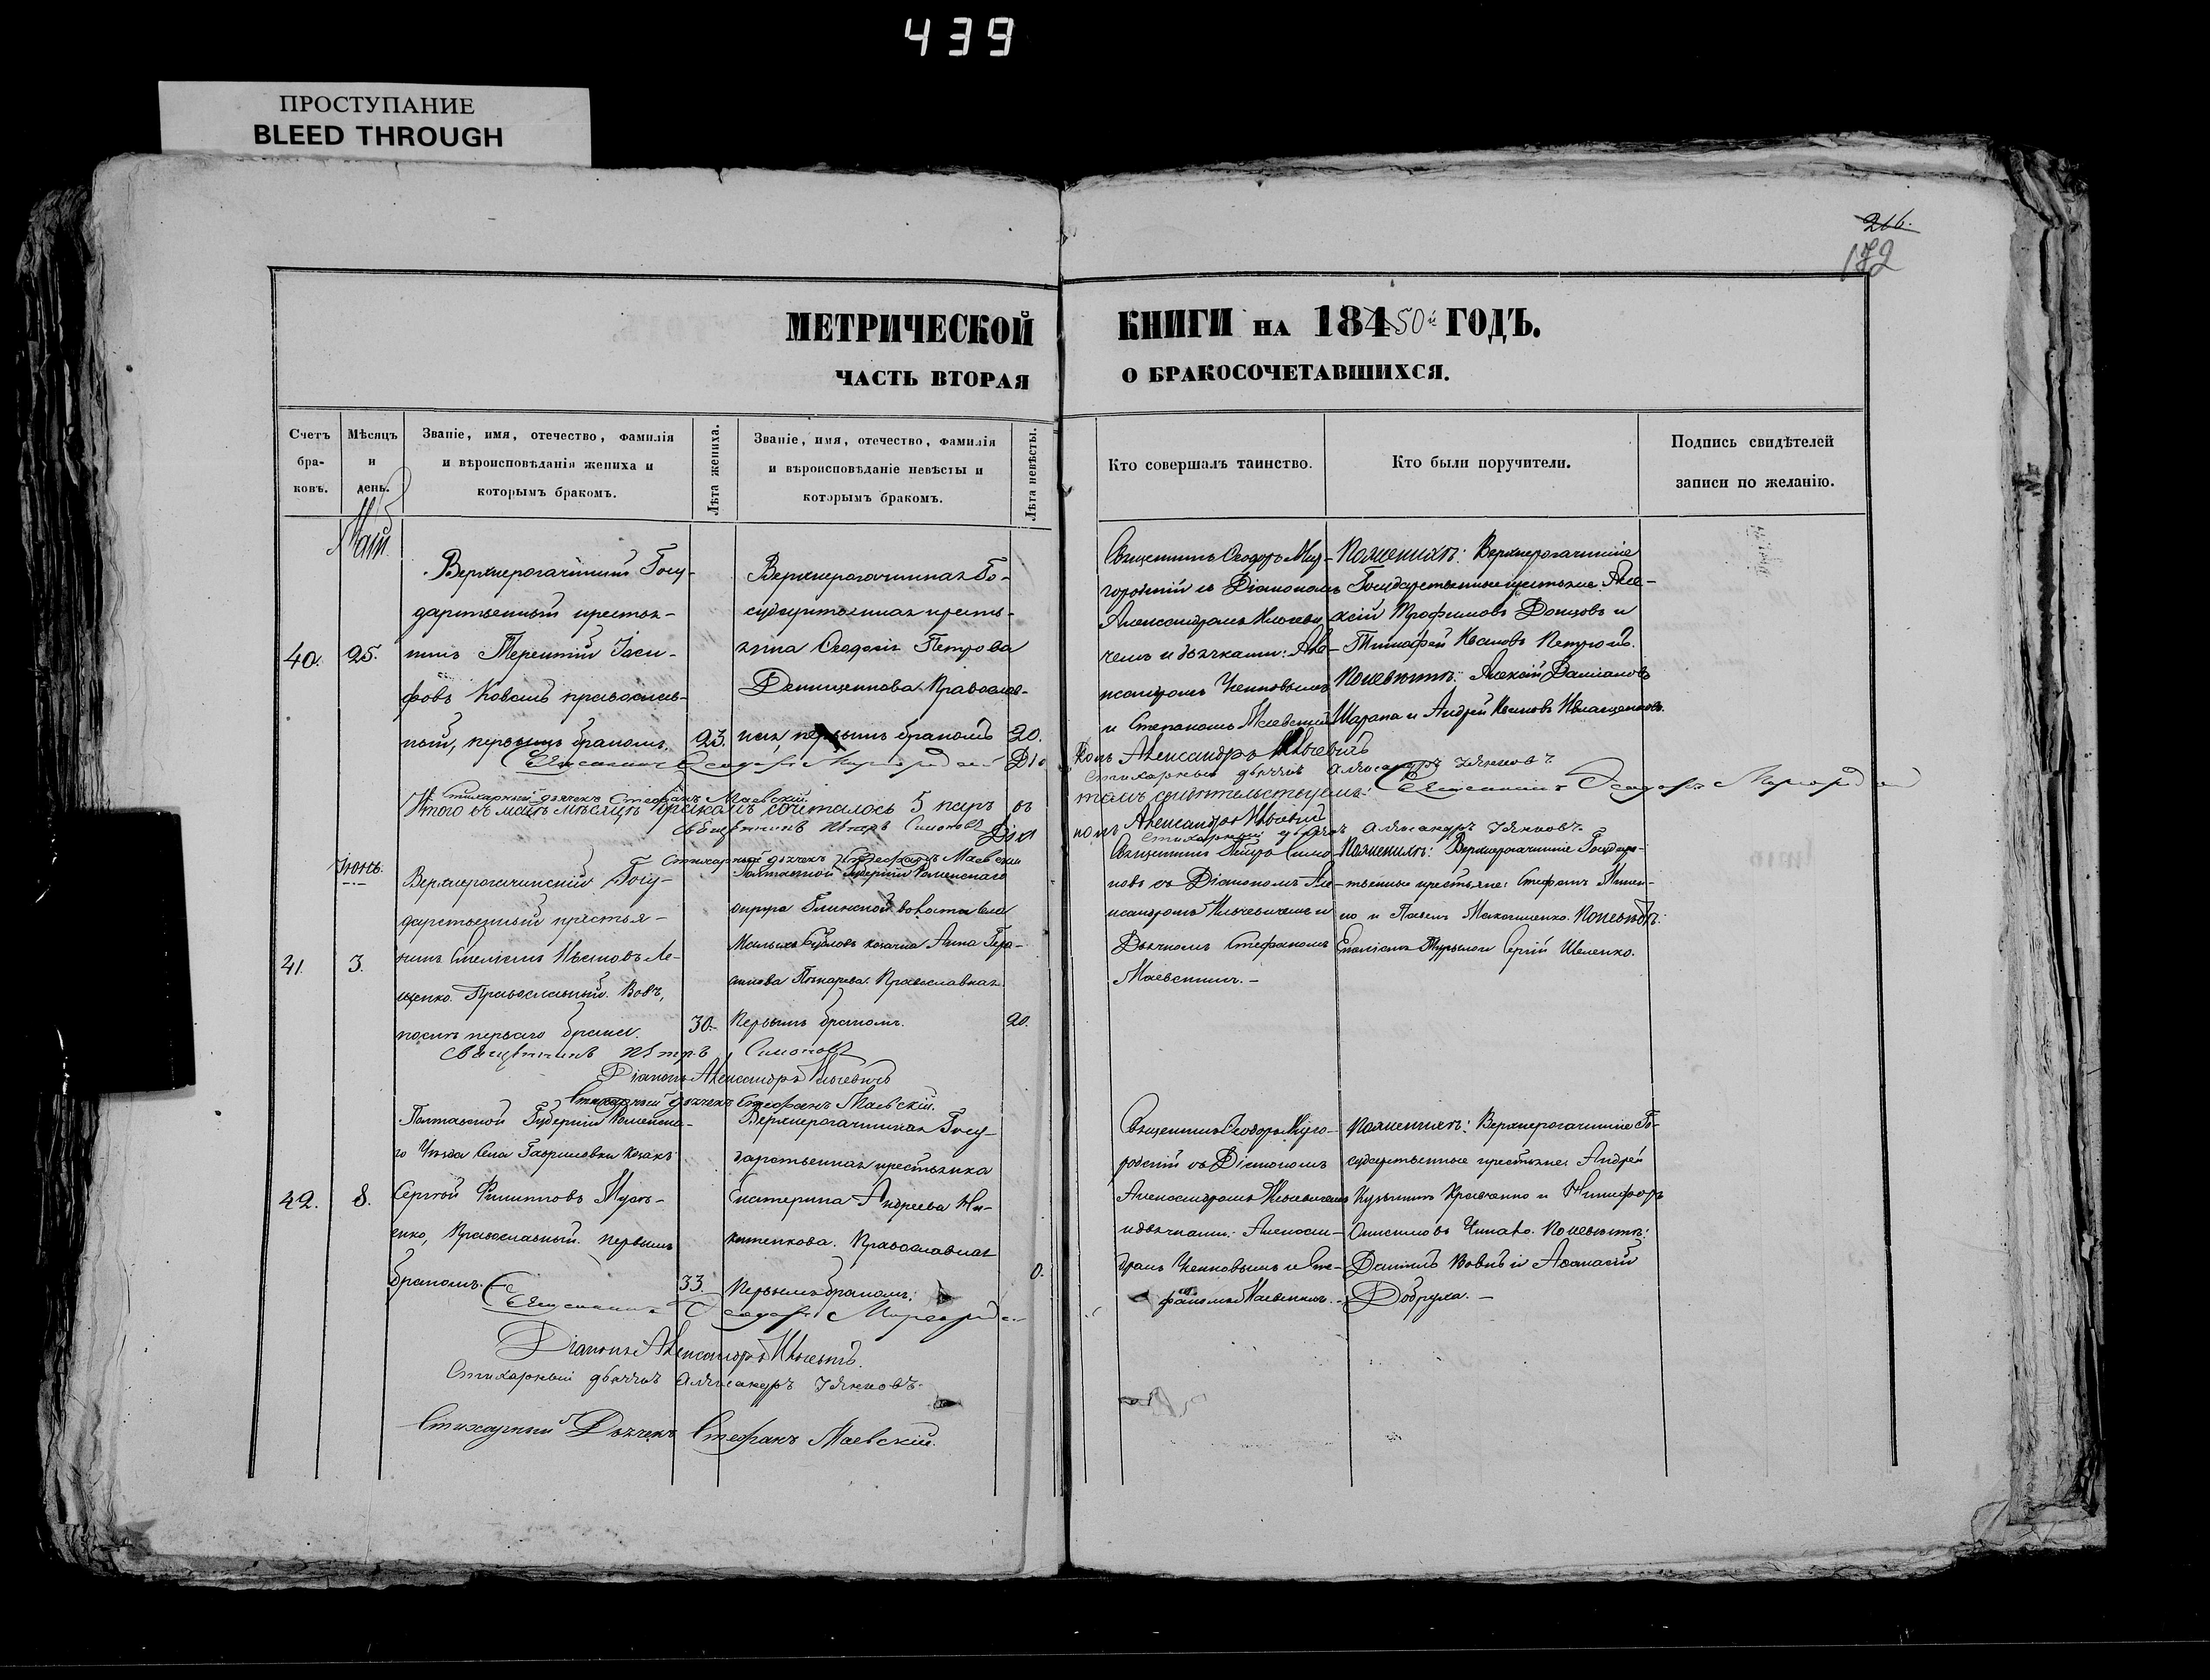 439
ПРОСТУПАНИЕ
BLEED THROUGH
216.
172
МЕТРИЧЕСКОЙ КНИГИ НА 184 50й ГОДЪ.
ЧАСТЬ ВТОРАЯ О БРАКОСОЧЕТАВШИХСЯ.
Счетъ бра- ковъ.
Мѣсяцъ и день.
Званіе, имя, отечество, фамилія
и вѣроисповѣданія жениха и
которымъ бракомъ.
Лѣта жениха.
Званіе, имя, отечество, фамилія
и вѣроисповѣданіе невѣсты и
которымъ бракомъ.
Лѣта невѣсты.
Кто совершалъ таинство.
Кто были поручители.
Подпись свидѣтелей
записи по желанію.
Май
40.
25.
Верхнерогачинскій Госу-
дарственный крестья-
нинъ Терентій Іоси-
фовъ Коваль православ-
ный, первымъ бракомъ.
23.
Верхнерогачинская Го-
сударственная кресть-
янка Феодосія Петрова
Православ-
ная, первымъ бракомъ
20.
Священникъ Феодоръ Мир-
городскій съ Діакономъ
Александромъ Ильеви-
чемъ и дьячками: Але-
ксандромъ
и Стефаномъ Маевскимъ
По женихѣ: Верхнерогачинскіе
Государственные крестьяне: Але-
ксій Трофимовъ Донцовъ и
Тимофей Ивановъ
По невѣстѣ: Алексій Даміановъ
Шарапа и Андрей Ивановъ
Священникъ Феодоръ Миргородскій Діаконъ Александръ Ильевичъ
Стихарный дьячекъ Александръ
Стихарный дьячекъ Стефанъ Маевскій.
Итого въ маѣ мѣсяцѣ бракомъ сочеталось 5 паръ въ
томъ свидѣтельствуемъ: Священникъ Феодоръ Миргородскій
Священникъ Петръ Симоновъ Діаконъ Александръ Ильевичъ
Стихарный дьячекъ Александръ
Стихарный дьячекъ Стефанъ Маевскій
Іюнь.
41.
3.
Верхнерогачинскій Госу-
дарственный крестья-
нинъ Ивановъ Ле-
щенко. Православный. Вдвъ,
послѣ перваго брака.
30.
Полтавской Губерніи Роменскаго
округа Глинской волости села
козачка Анна Гера-
симова Православная
Первымъ бракомъ.
20.
Священникъ Петръ Симо-
новъ съ Діакономъ Але-
ксандромъ Ильевичемъ и
Дьячкомъ Стефаномъ
Маевскимъ.-
По женихѣ: Верхнерогачинскіе Государ-
ственные крестьяне: Стефанъ
и Павелъ По невѣстѣ:
и Сергій
Священникъ Петръ Симоновъ
Діаконъ Александръ Ильевичъ
Стихарный дьячекъ Стефанъ Маевскій.
42.
8.
Полтавской Губерніи Роменска-
го Уѣзда села Гавриловки козакъ
Сергѣй Филипповъ
Православный. Первымъ
бракомъ.
33.
Верхнерогачинская Госу-
дарственная крестьянка
Екатерина Андреева Ни-
китенкова. Православная
Первымъ бракомъ.
0.
Священникъ Феодоръ Мирго-
родскій съ Діакономъ
Александромъ Ильевичемъ
и дьячками: Алекса-
ндромъ и Сте-
фаномъ Маевскимъ.-
По женихѣ: Верхнерогачинскіе Го-
сударственные крестьяне: Андрей
Кузьминъ Кравченко и Никифоръ
Онисимовъ По невѣстѣ:
Даніилъ и Афанасій
Добруха.-
Священникъ Феодоръ Миргородскій
Діаконъ Александръ Ильевичъ.
Стихарный дьячокъ Александръ
Стихарный Дьячекъ Стефанъ Маевскій.